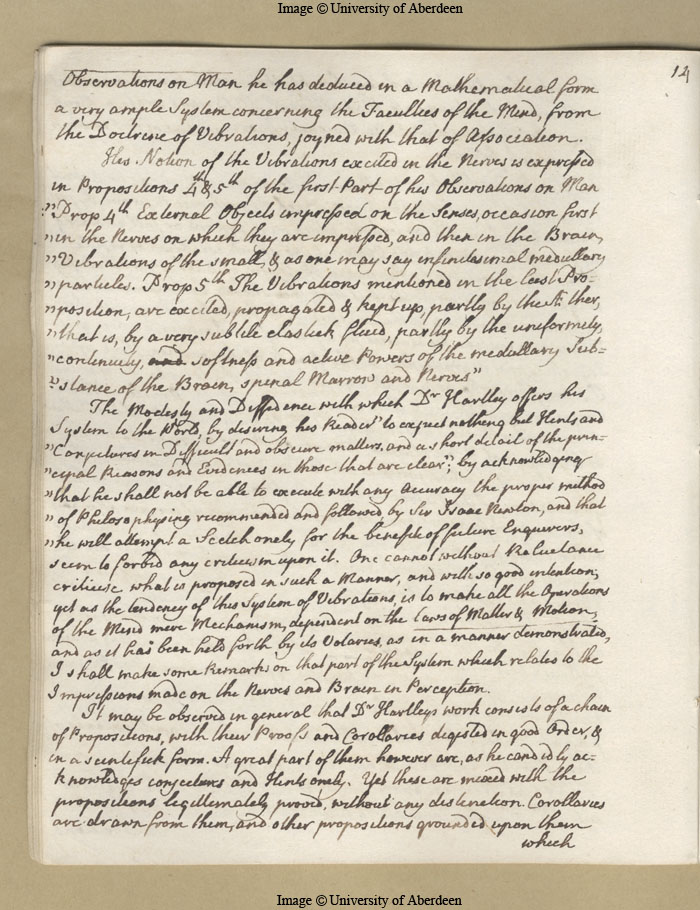 Image © University of Aberdeen
14
Observations on Man he has deduced in a Mathematical form
a very ample System concerning the Faculties of the Mind, from
the Doctrine of Vibrations, joyned with that of Association.
His Notion of the Vibrations excited in the Nerves is expressed
in Propositions 4th & 5th of the first Part of his Observations on Man
"Prop 4th External Objects impressed on the Senses, occasion first
"in the Nerves on which they are impressed, and then in the Brain,
"Vibrations of the small, & as one may say infinitesimal medullary
"particles. Prop 5th The Vibrations mentioned in the last Pro-
"position, are excited, propagated & kept up, partly by the Æther,
"that is, by a very subtile elastick fluid, partly by the uniformity,
"continuity, and softness and active Powers of the medullary Sub-
"stance of the Brain, spinal Marrow and Nerves"
The Modesty and Diffidence with which Dr Hartley offers his
System to the World, by desiring his Reader "to expect nothing but Hints and
"Conjectures in Difficult and obscure matters, and a short detail of the prin-
"cipal Reasons and Evidences in those that are clear"; by acknowledging
"that he shall not be able to execute with any Accuracy the proper method
"of Philosophysing recommended and followed by Sir Isaac Newton, and that
"he will attempt a Scetch onely for the benefit of future Enquirers,
seem to forbid any criticism upon it. One cannot without Reluctance
criticise what is proposed in such a Manner, and with so good intention;
yet as the tendency of this System of Vibrations, is to make all the Operations
of the Mind mere Mechanism, dependent on the Laws of Matter & Motion,
and as it has been held forth by its Votaries, as in a manner demonstrated,
I shall make some Remarks on that part of the System which relates to the
Impressions made on the Nerves and Brain in Perception.
It may be observed in general that Dr Hartleys work consists of a chain
of Propositions, with their Proofs and Corollaries digested in good Order, &
in a scientifick form. A great part of them however are, as he candidly ac-
knowledges conjectures and Hints onely. Yet these are mixed with the
propositions legitimately proved, without any distinction. Corollaries
are drawn from them, and other propositions grounded upon them
which
Image © University of Aberdeen